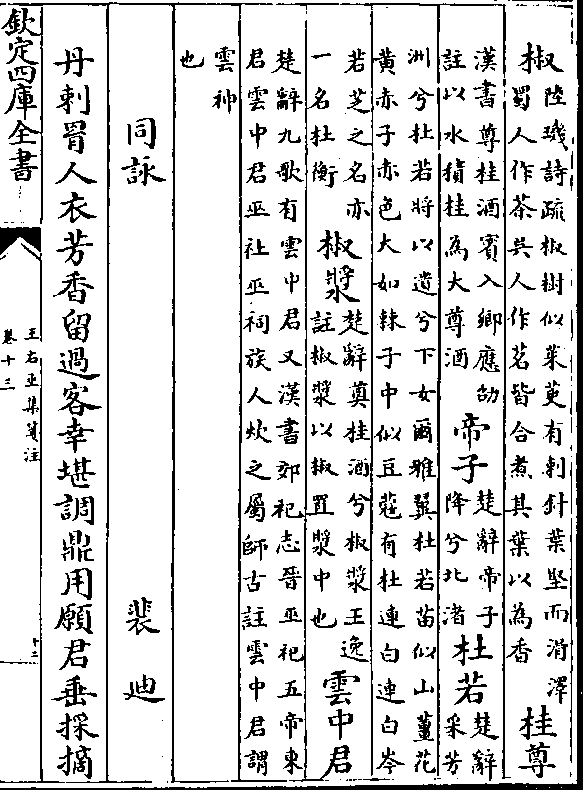 椒陸璣詩疏椒樹似茱萸有刺針葉堅而滑澤蜀人作茶吳人作茗皆合煮其葉以為香桂尊
漢書尊桂酒賓入鄉應劭註以水積桂為大尊酒帝子楚辭帝子降兮北渚杜若楚辭采芳
洲兮杜若將以遺兮下女爾雅翼杜若苗似山薑花黄赤子赤色大如棘子中似豆蔻有杜連白連白岑
若芝之名亦一名杜衡椒漿楚辭奠桂酒兮椒漿王逸註椒漿以椒置漿中也雲中君
楚辭九歌有雲中君又漢書郊祀志晉巫祀五帝東君雲中君巫社巫祠族人炊之屬師古註雲中君謂
雲神也
同詠 裴迪
丹刺罥人衣芳香留過客幸堪調鼎用願君垂採摘
欽定四庫全書
王右丞集箋注
卷十三
十二